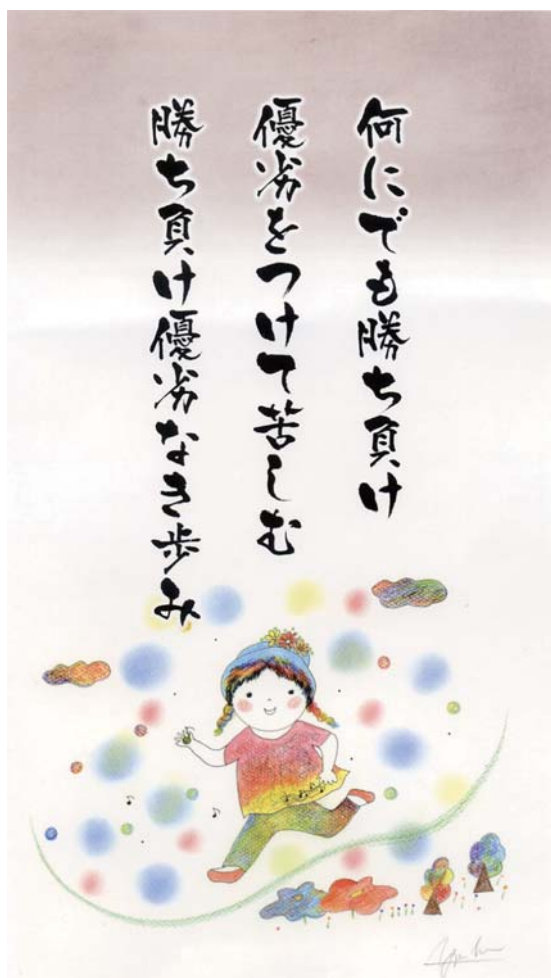 何にでも勝ち負け
優劣をつけて苦しむ
勝ち負け優劣なき歩み